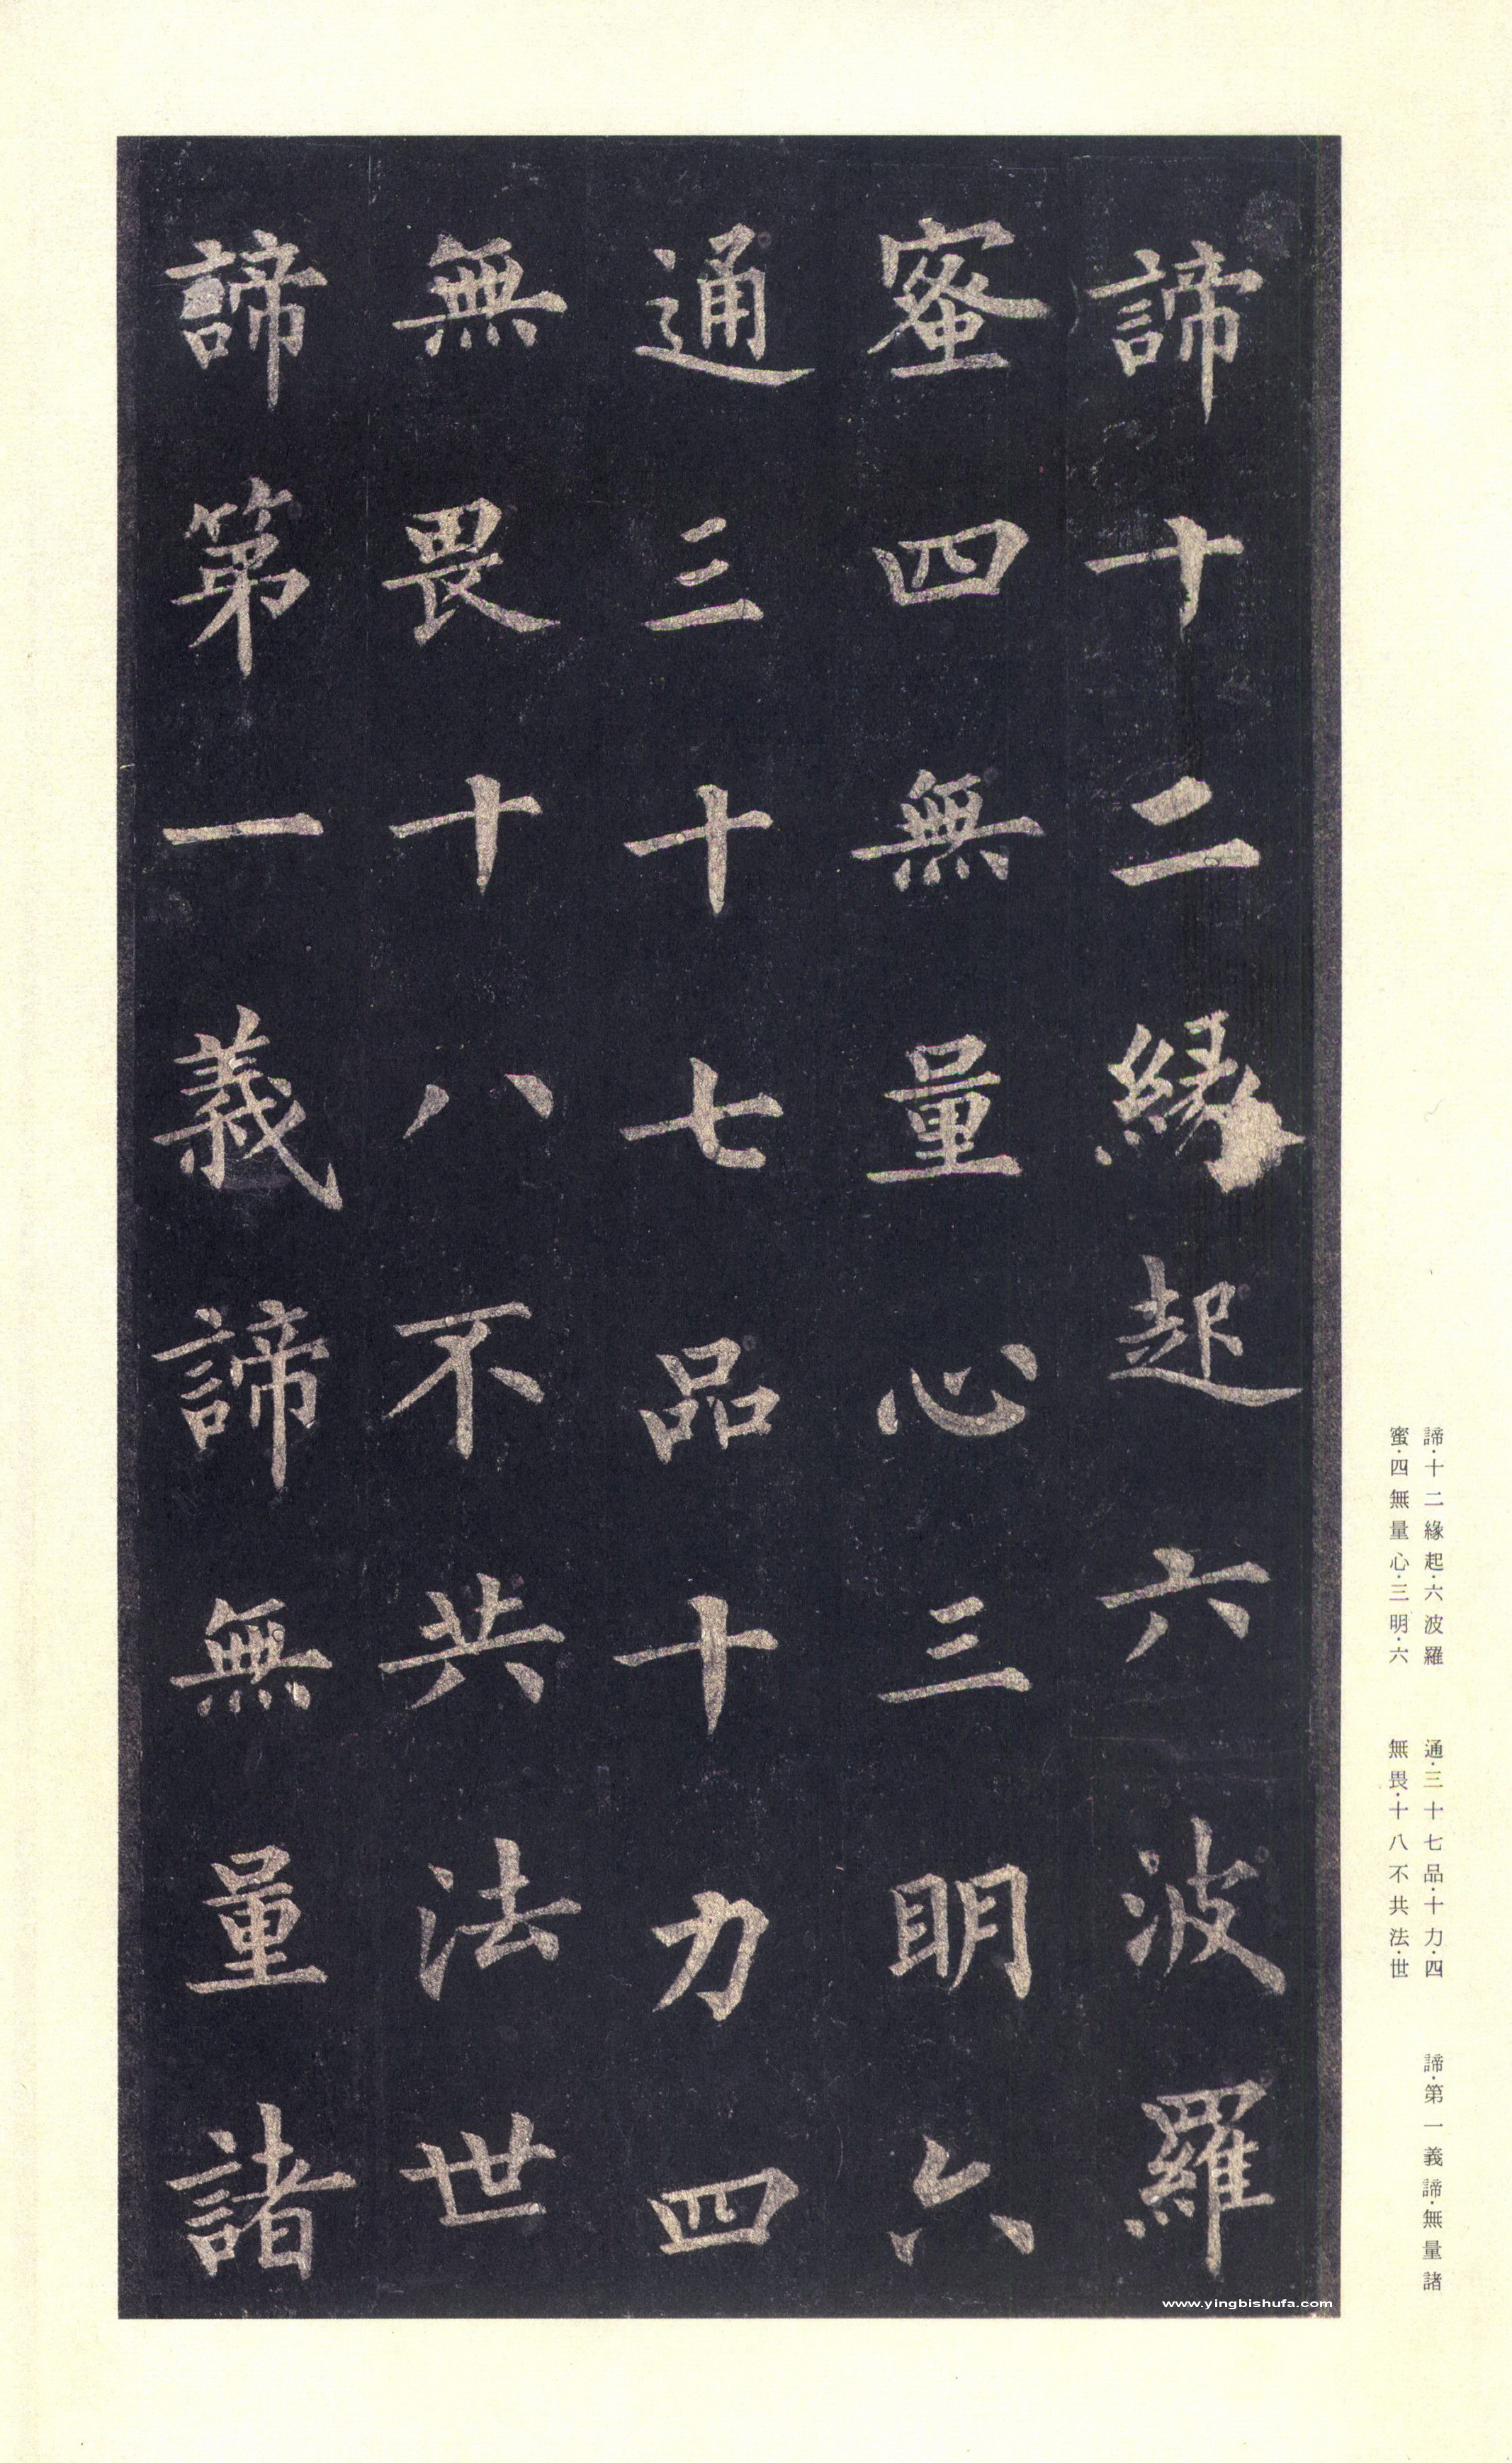 諦十二緣起六波羅
蜜四無量心三明六
通三十七品十力四
無畏十八不共法世
諦第一義諦無量諸
諦·十二緣起·六波羅
蜜·四無量心·三明·六
通·三十七品·十力·四
無畏·十八不共法·世
諦·第一義諦·無量諸
www.yingbishufa.com